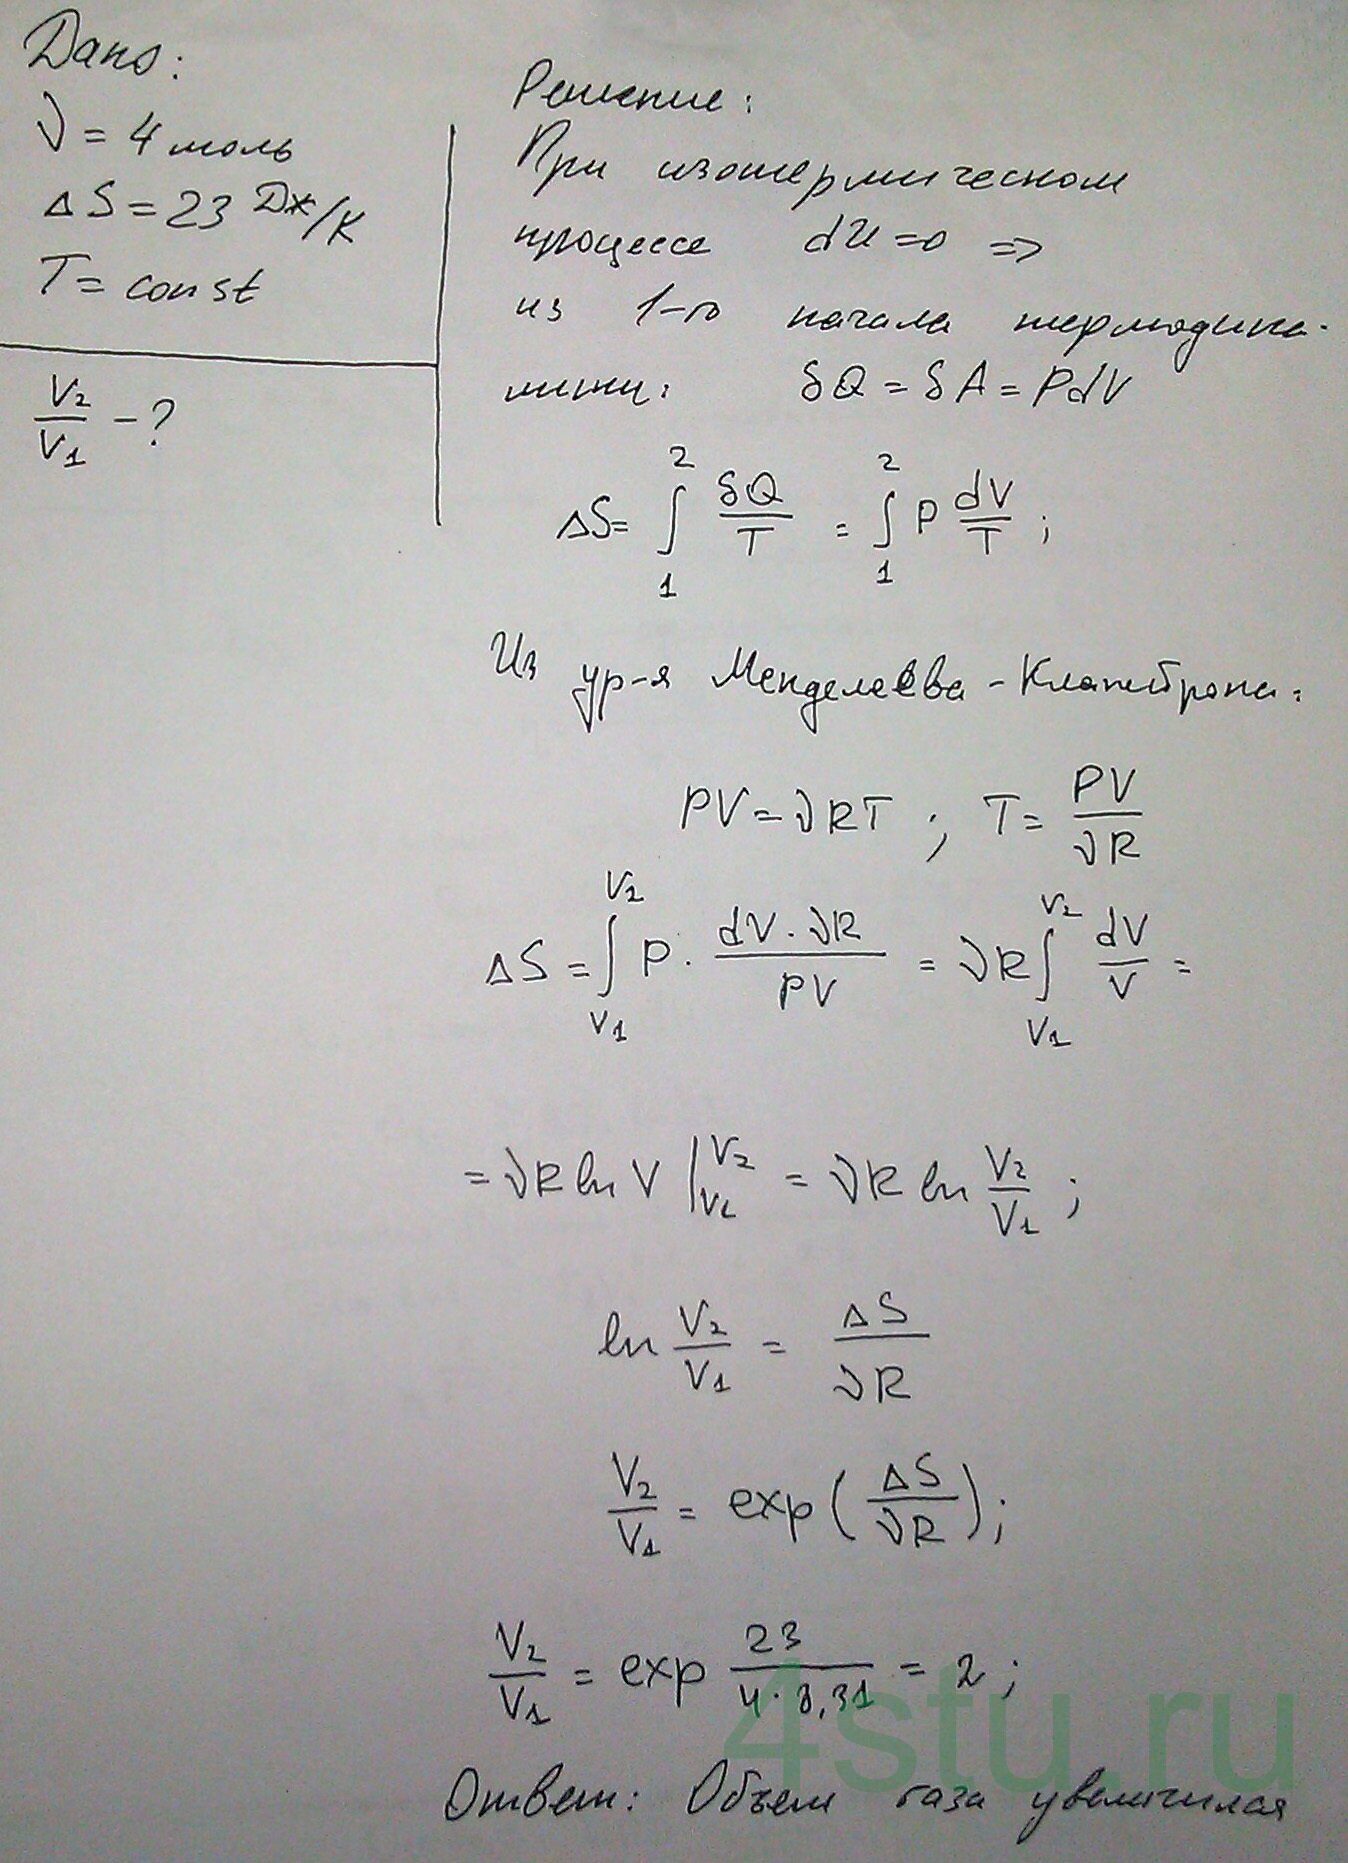 Дано:
ν = 4 моль
ΔS = 23 Дж/К
T = const
V₂/V₁ - ?
Решение:
При изотермическом
процессе dU = 0 =>
из 1-го начала термодина-
мики: δQ = δA = PdV
ΔS = ∫₁² δQ/T = ∫₁² P dV/T ;
Из ур-я Менделеева - Клапейрона:
PV = νRT ; T = PV/νR
ΔS = ∫_{V₁}^{V₂} P · dV · νR/PV = νR ∫_{V₁}^{V₂} dV/V =
= νR ln V |_{V₁}^{V₂} = νR ln V₂/V₁ ;
ln V₂/V₁ = ΔS/νR
V₂/V₁ = exp (ΔS/νR) ;
V₂/V₁ = exp 23/4 · 8,31 = 2 ;
4stu.ru
Ответ: Объем газа увеличился